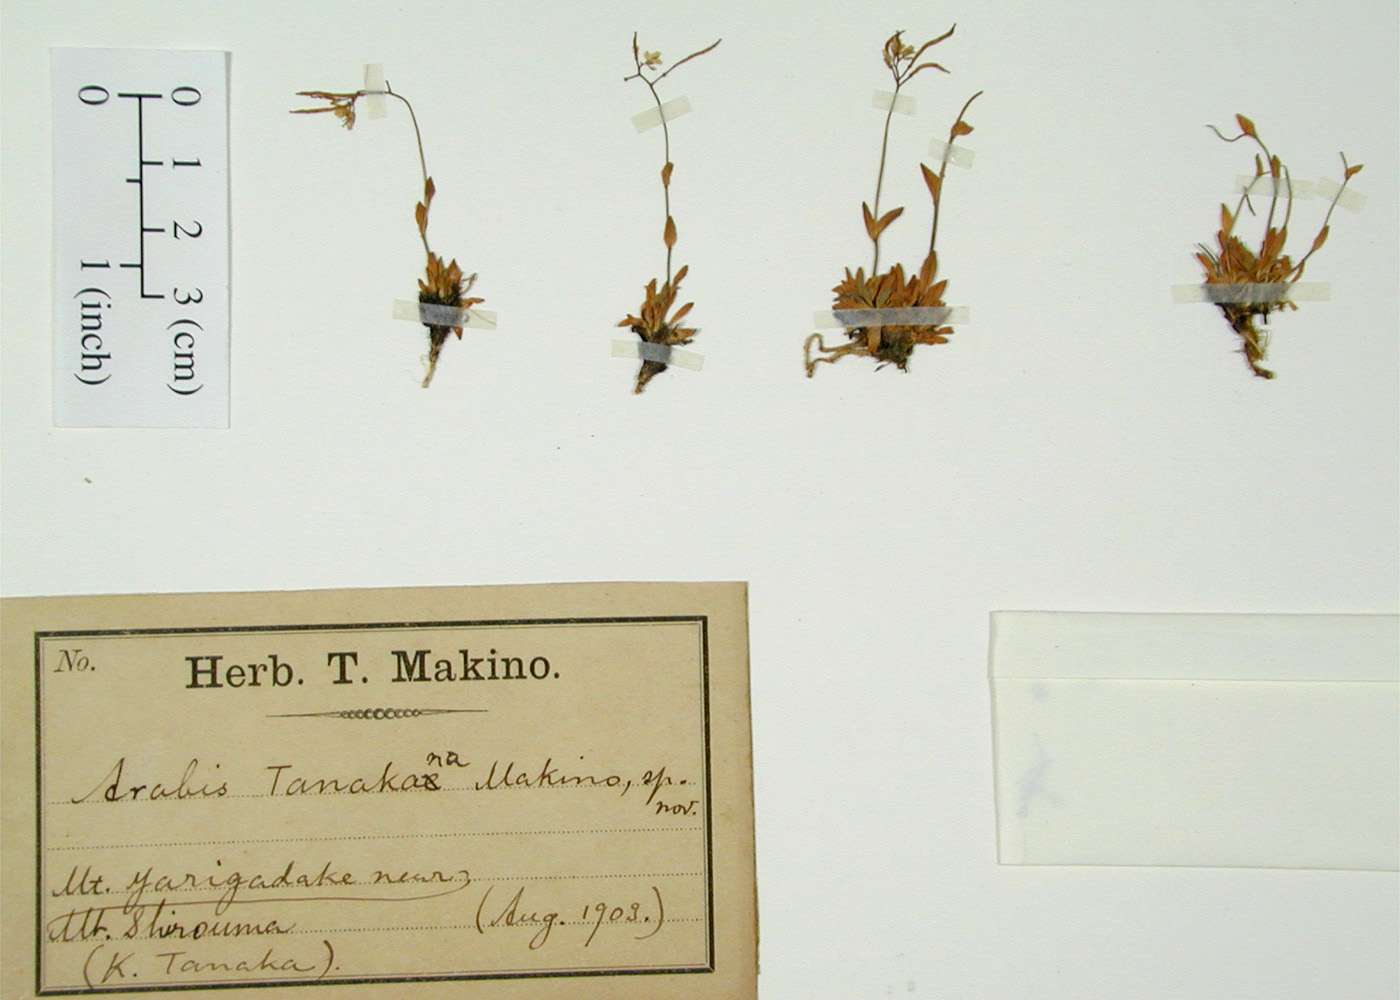 0 1 2 3 (cm)
0 1 (inch)
No.
Herb. T. Makino.
Arabis Tanakana Makino, sp.
nov.
Mt. Yarigadake near
Mt. Shirouma (Aug. 1903.)
(K. Tanaka).